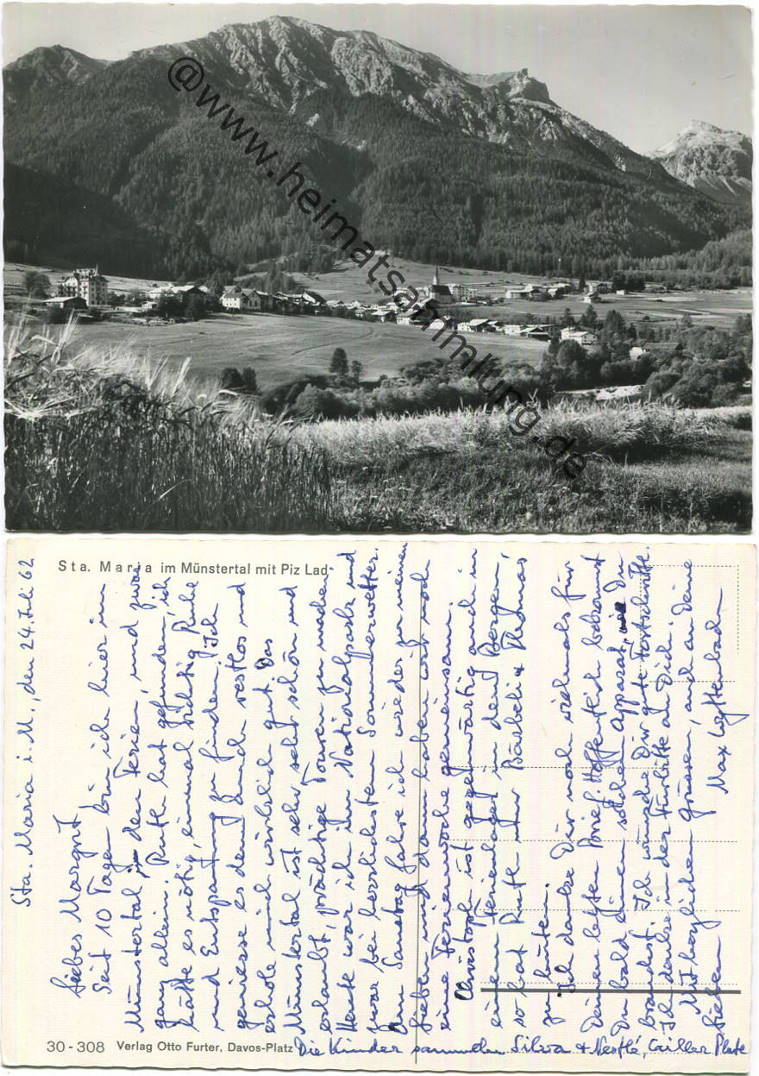 @www.heimatsammlung.de
Sta. Maria im Münstertal mit Piz Lad
Sta. Maria i. M., den 24. Juli 62
Liebes Margrit
Seit 10 Tagen bin ich hier im
Münstertal in den Ferien, und zwar
ganz allein. Ruth hat gefunden, ich
hätte es nötig, einmal richtig Ruhe
und Entspannung zu finden. Ich
geniesse es denn auch restlos und
erhole mich wirklich gut. Das
Münstertal ist sehr, sehr schön und
erlaubt, prächtige Touren zu machen.
Heute war ich im Nationalpark und
zwar bei herrlichstem Sommerwetter.
Am Samstag fahre ich wieder zu meinen
Lieben und dann haben wir noch
eine Ferienwoche gemeinsam.
Christoph ist gegenwärtig auch in
einem Ferienlager in den Bergen,
so hat Ruth nur Bärbeli & Thomas
zu hüten.
Ich danke Dir noch vielmals für
Deinen letzten Brief. Hoffentlich bekommst
Du bald einen solchen Apparat, wie Du
brauchst. Ich wünsche Dir gute Fortschritte.
Ich denke in der Fürbitte an Dich.
Mit herzlichen Grüssen, auch an Deine
Lieben Max
Die Kinder sammeln Silva & Nestlé, Cailler
30-308 Verlag Otto Furter, Davos-Platz